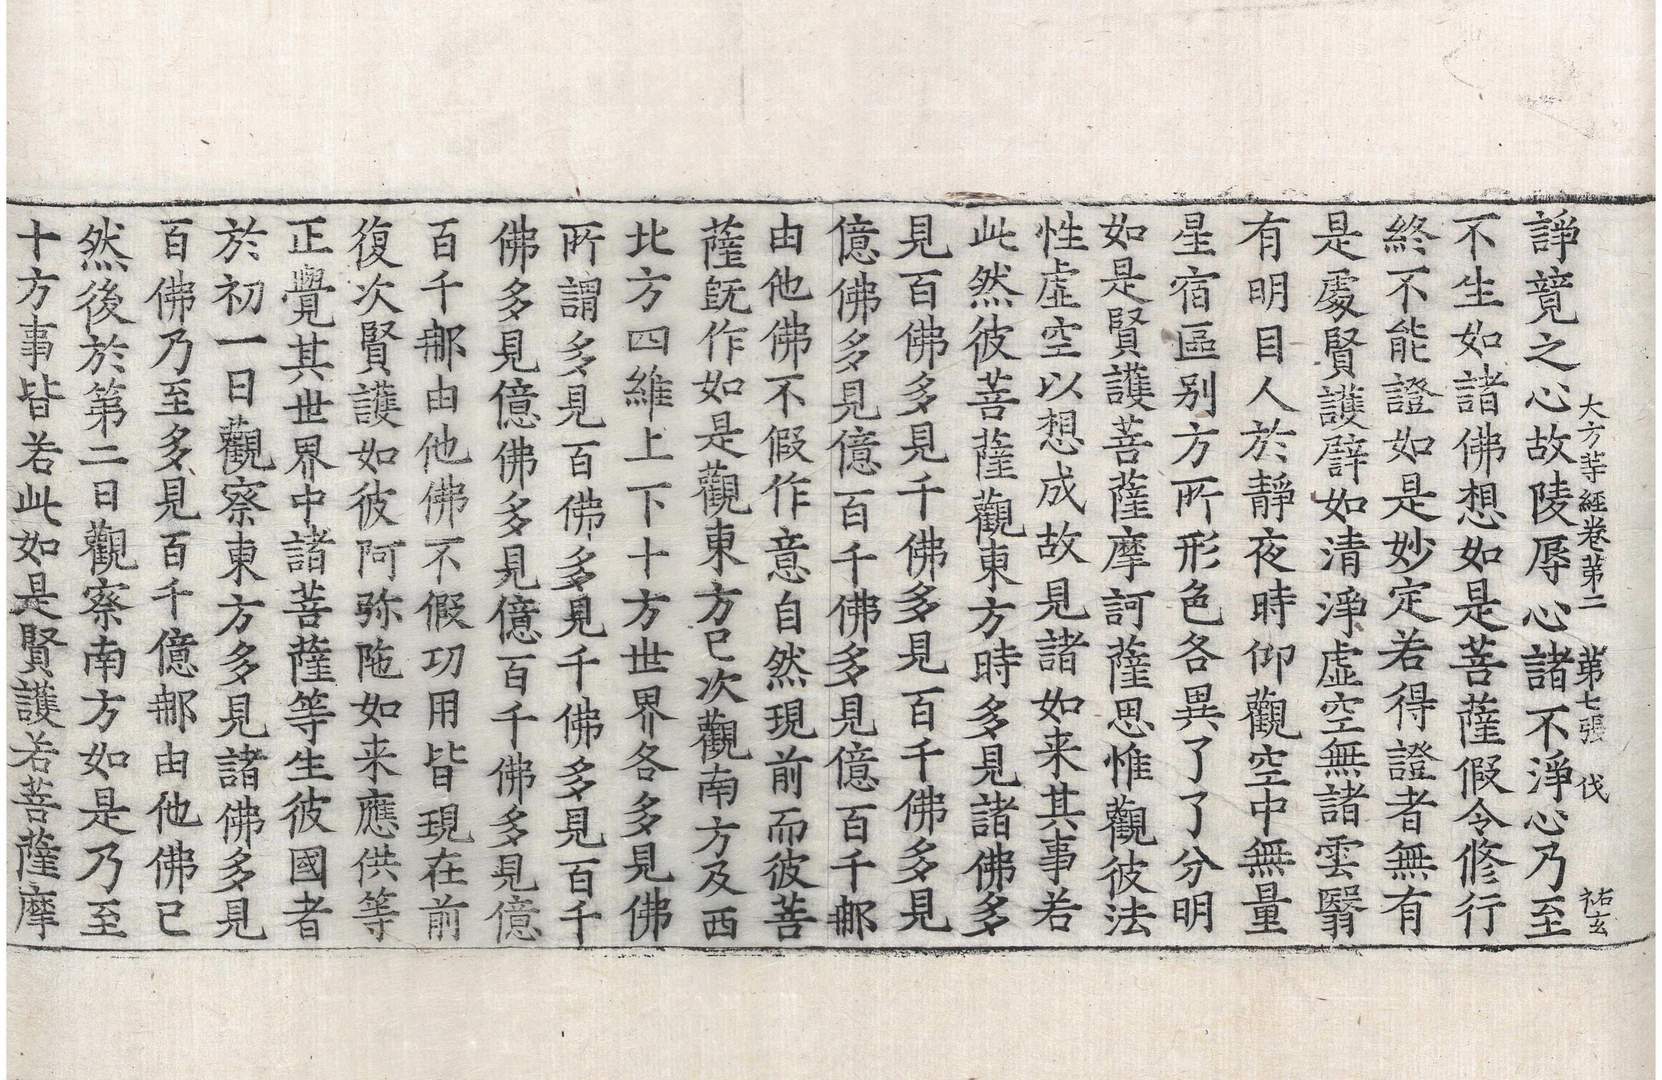 大方等経卷第二　第七張　伐　祐玄
諍競之心故陵辱心諸不淨心乃至
不生如諸佛想如是菩薩假令修行
終不能證如是妙定若得證者無有
是處賢護譬如清淨虛空無諸雲翳
有明目人於靜夜時仰觀空中無量
星宿區别方所形色各異了了分明
如是賢護菩薩摩訶薩思惟觀彼法
性虛空以想成故見諸如来其事若
此然彼菩薩觀東方時多見諸佛多
見百佛多見千佛多見百千佛多見
億佛多見億百千佛多見億百千那
由他佛不假作意自然現前而彼菩
薩既作如是觀東方已次觀南方及西
北方四維上下十方世界各多見佛
所謂多見百佛多見千佛多見百千
佛多見億佛多見億百千佛多見億
百千那由他佛不假功用皆現在前
復次賢護如彼阿弥陁如来應供等
正覺其世界中諸菩薩等生彼國者
於初一日觀察東方多見諸佛多見
百佛乃至多見百千億那由他佛已
然後於第二日觀察南方如是乃至
十方事皆若此如是賢護若菩薩摩